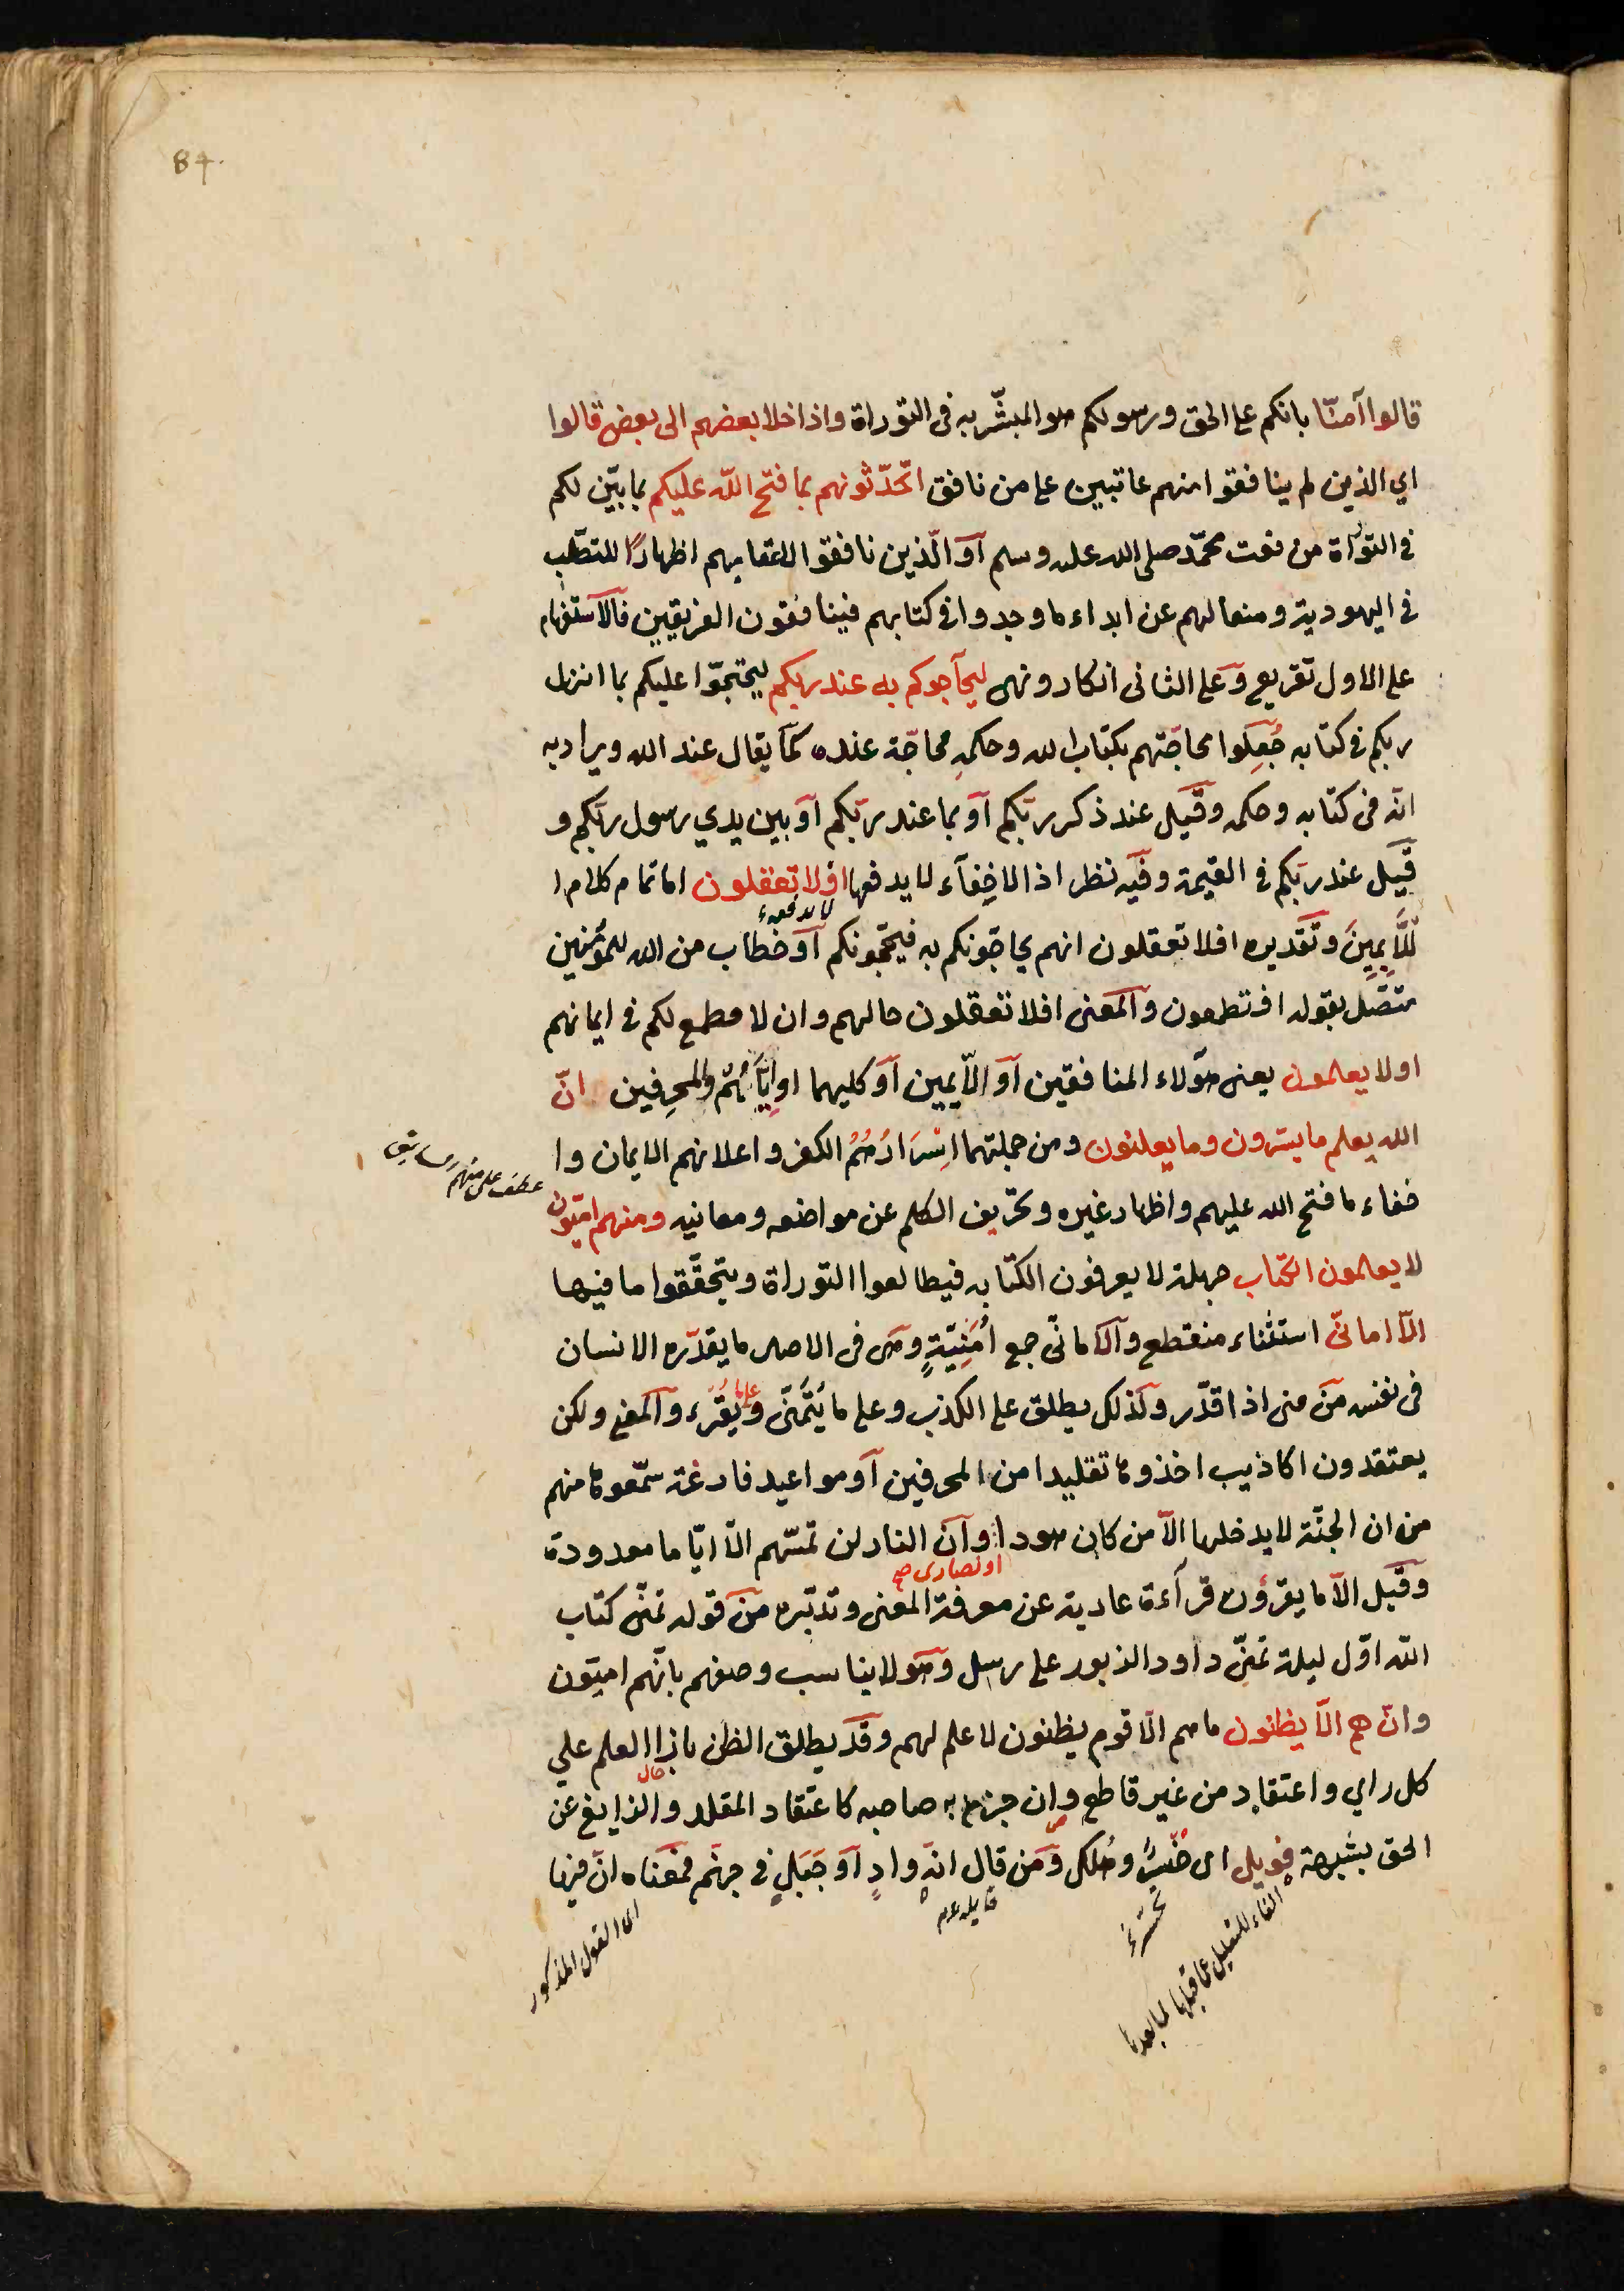 84.
قالوا آمنّا بانكم على الحق ورسولكم هو المبشّر به فى التوراة واذا خلا بعضهم الى بعض قالوا
اي الذين لم ينافقوا منهم عاتبين على من نافق اتحدّثونهم بما فتح الله عليكم بما بيّن لكم
فى التوراة من نعت محمّد صلى الله عليه وسلم آو الّذين نافقوا لاعقابهم اظهارًا للتصلّب
فى اليهودية ومنعا لهم عن ابداء ما وجدوا فى كتابهم فينافقون الفريقين فالاستفهام
على الاول تقريع وعلى الثانى انكار ونهى ليحآجوكم به عند ربكم ليحتجّوا عليكم بما انزل
ربكم فى كتابه جُعِلوا محاجّتهم بكتاب الله وحكمهِ محاجّة عنده كما يقال عند الله ويراد به
انّه فى كتابه وحكمه وقيل عند ذكر ربّكم آو بما عند ربّكم آو بين يدي رسول ربّكم و
قيل عند ربّكم فى القيمة وفيه نظر اذ الاخِفآء لا يدفعها افلا تعقلون اما تمام كلام ا
لا يدفعه
للّآيِمِينَ وتقديره افلا تعقلون انهم يحاجّونكم به فيحجّونكم آو خطاب من الله للمؤمنين
متّصل بقوله افتطمعون والمعنى افلا تعقلون حالهم وان لا مطمع لكم فى ايمانهم
اولا يعلمون يعنى هؤلاء المنافقين آو اللّآيمين آو كليهما او ايّاهُمْ والمحرِفين انّ
الله يعلم ما يسّرون وما يعلنون ومن جملتهما اسْرَارُهُمُ الكفر واعلانهم الايمان وا
عطف على منهم سابق
خفاء ما فتح الله عليهم واظهار غيره وتحريف الكلم عن مواضعه ومعانيه ومنهم اميّون
لا يعلمون الكتاب جهلة لا يعرفون الكتابه فيطالعوا التوراة ويتحقّقوا ما فيها
الّا امانىّ استثناء منقطع والامانىّ جمع أُمنِيّةٍ وهى فى الاصل ما يقدّره الانسان
فى نفسه من منى اذا قدّر ولذلك يطلق على الكذب وعلى ما يُتمَنّى وما يُقْرَء والمعنى ولكن
يعتقدون اكاذيب اخذوها تقليدا من المحرفين آو مواعيد فارغة سمّعوها منهم
من ان الجنّة لا يدخلها الّا من كان هودا وآن النار لن تمسّهم الّا ايّاما معدودة
او نصارى صح
وقيل الّا ما يقرؤن قرآءة عارية عن معرفة المعنى وتدبّره من قوله تمنّى كتاب
الله اوّل ليلة تمنّى داود الزبور على رسل وهو لا يناسب وصفهم بانّهم اميّون
وانْ هم الّا يظنون ما هم الّا قوم يظنون لا علم لهم وقد يطلق الظن بازاا العلم علي
كل راي واعتقاد من غير قاطع وان جزم به صاحبه كاعتقاد المقلد والزايغ عن
الحق بشبهة فويل اى تحسّر وهلك ومن قال انه وادٍ آو جبلٍ فى جهنّم فمعناه انّ فيها
اى القول المذكور
قايله
تحسّرُ
الفاء للتعليل عما قبلها لما بعدها